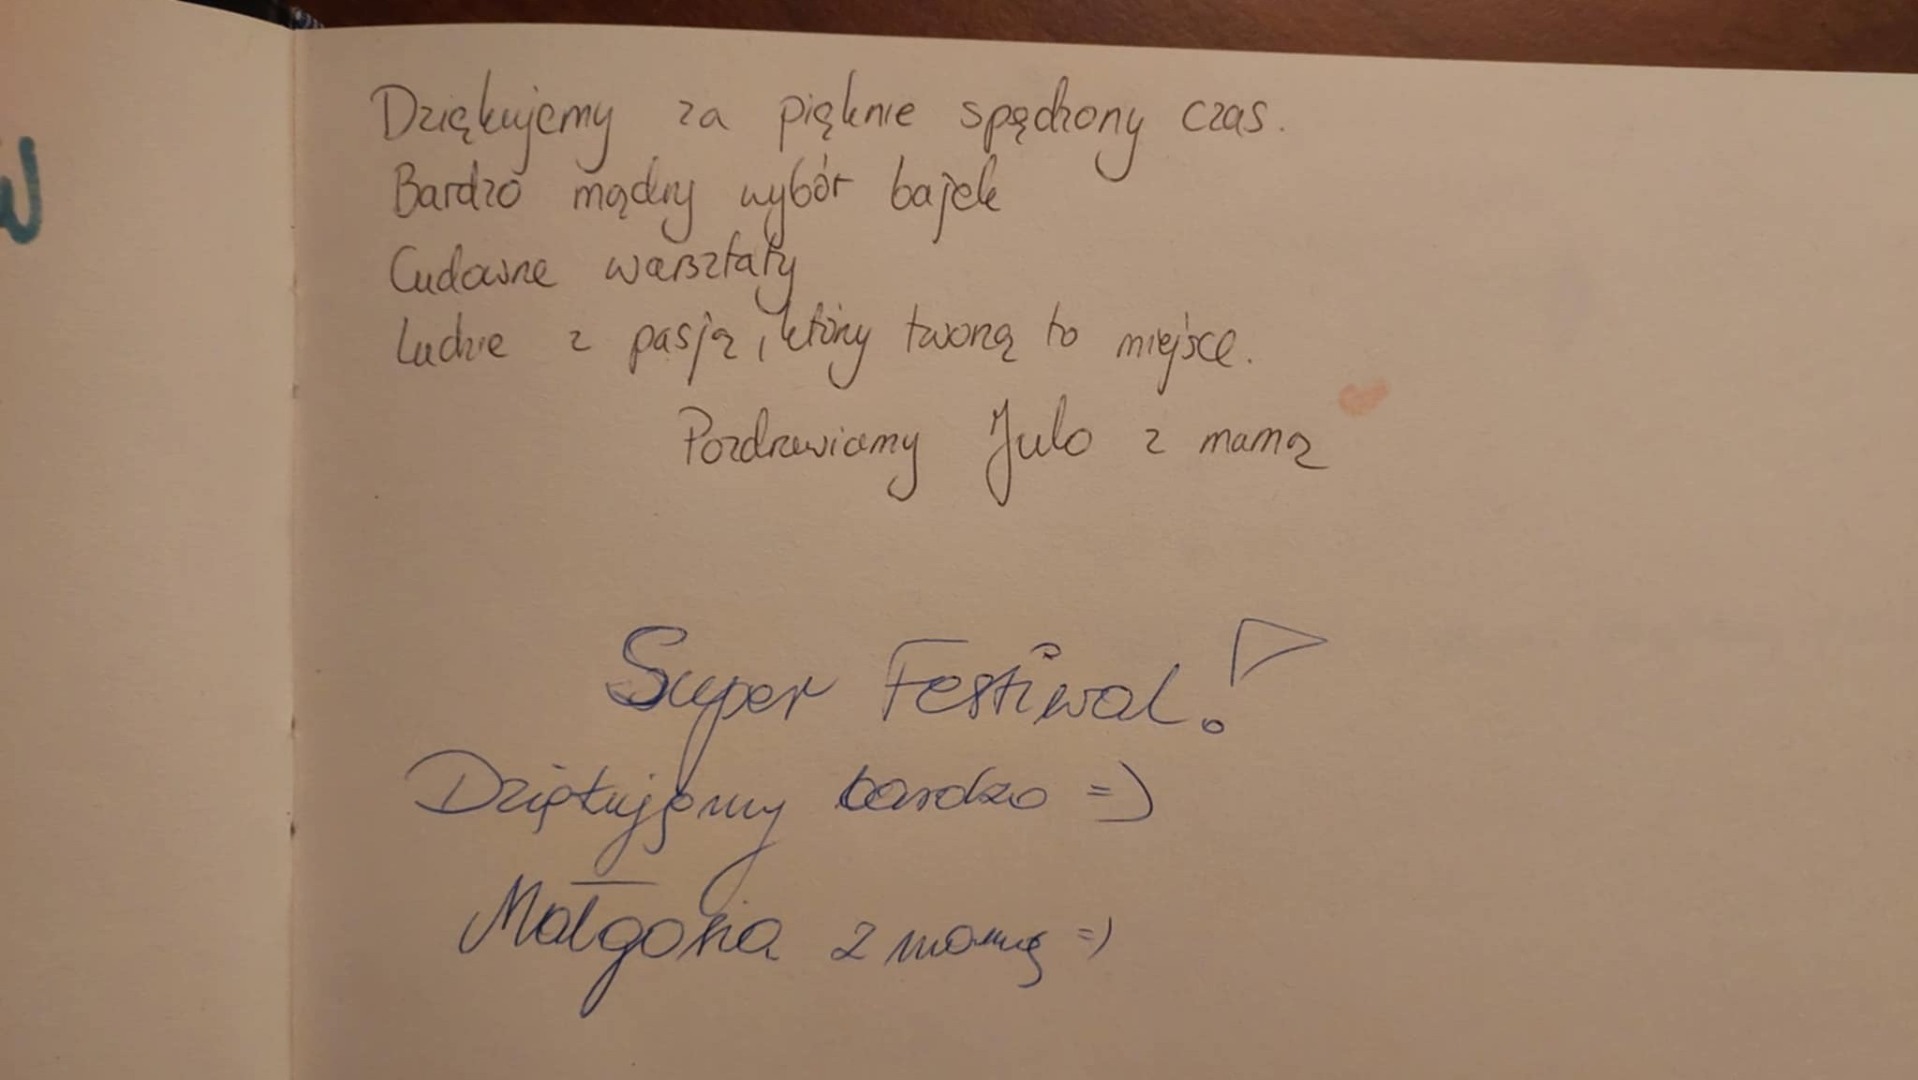 Dziękujemy za pięknie spędzony czas.
Bardzo mądry wybór bajek
Cudowne warsztaty
Ludzie z pasją, którzy tworzą to miejsce.
Pozdrawiamy Julo z mamą
Super Festiwal!
Dziękujemy bardzo =)
Małgosia z mamą =)